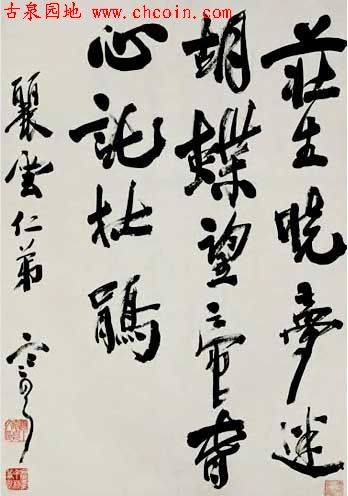 古泉园地
www.chcoin.com
莊生曉夢迷
胡蝶望帝春
心託杜鵑
雲仁弟